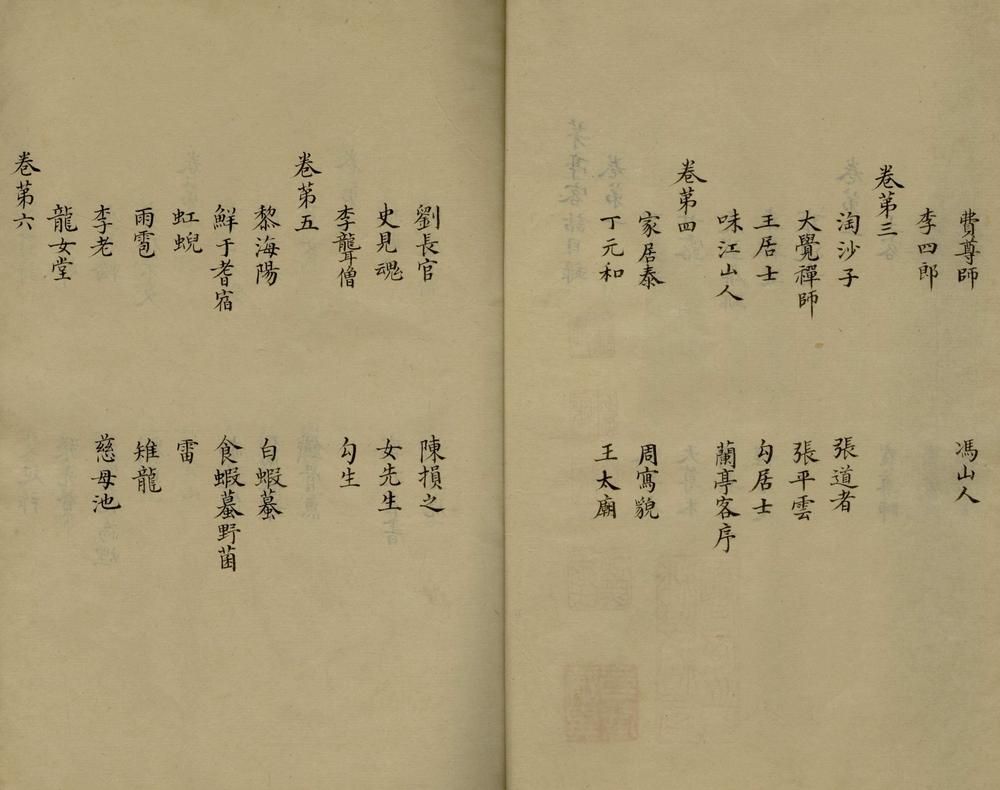 費尊師 馮山人
李四郎
卷第三
淘沙子 張道者
大覺禪師 張平雲
王居士 勾居士
味江山人 蘭亭客序
卷第四
家居泰 周寫貌
丁元和 王太廟
劉長官 陳損之
史見魂 女先生
李聾僧 勾生
卷第五
黎海陽 白蝦蟇
鮮于耆宿 食蝦蟇野菌
虹蜺 雷
雨雹 雉龍
李老 慈母池
龍女堂
卷第六